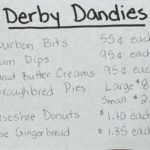 Derby Dandies
urbon Bits 55¢ eac
um Dips 95¢ eac
nut Butter Creams 95¢ eac
oroughbred Pies Large $8
Small $2.
rseshoe Donuts $1.10 each
se Gingerbread $1.35 each